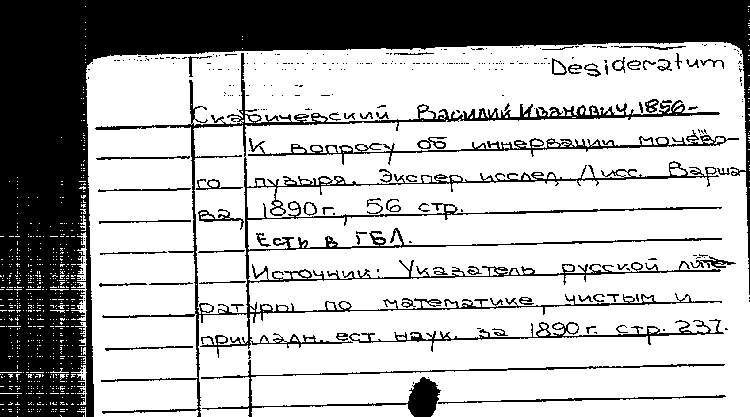 Desideratum
Скабичевский, Василий Иванович, 1856-
К вопросу об иннервации мочево-
го пузыря. Экспер. исслед. Дисс. Варша-
ва, 1890 г., 56 стр.
Есть в ГБЛ.
Источник: Указатель русской лите-
ратуры по математике, чистым и
прикладн. ест. наук. за 1890 г. стр. 237.